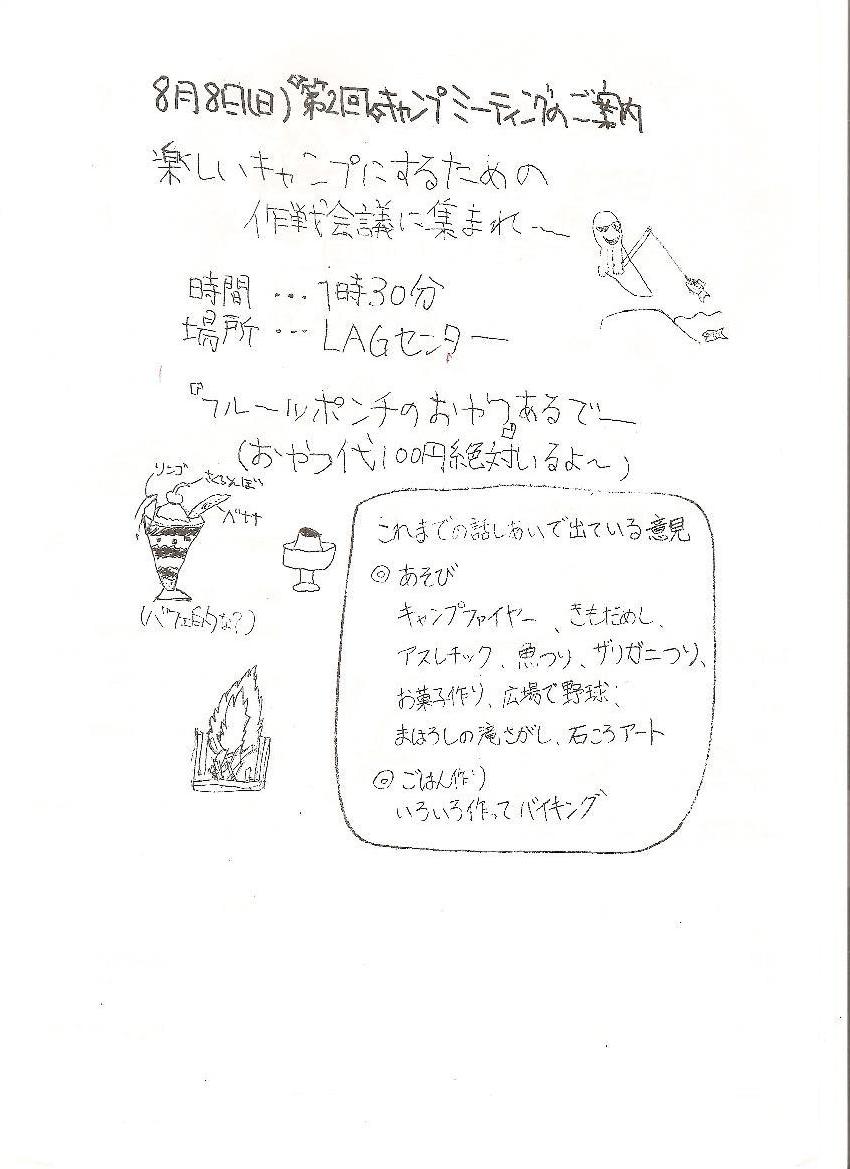 8月8日(日)第2回キャンプミーティングのご案内
楽しいキャンプにするための
作戦会議に集まれ〜
時間…1時30分
場所…LAGセンター
『フルールポンチのおやつあるでー』
(おやつ代100円絶対いるよ〜)
リンゴ
さくらんぼ
バナナ
(パフェ的な?)
これまでの話しあいで出ている意見
◎あそび
キャンプファイヤー、きもだめし、
アスレチック、魚つり、ザリガニつり、
お菓子作り、広場で野球、
まぼろしの滝さがし、石ころアート
◎ごはん作り
いろいろ作ってバイキング